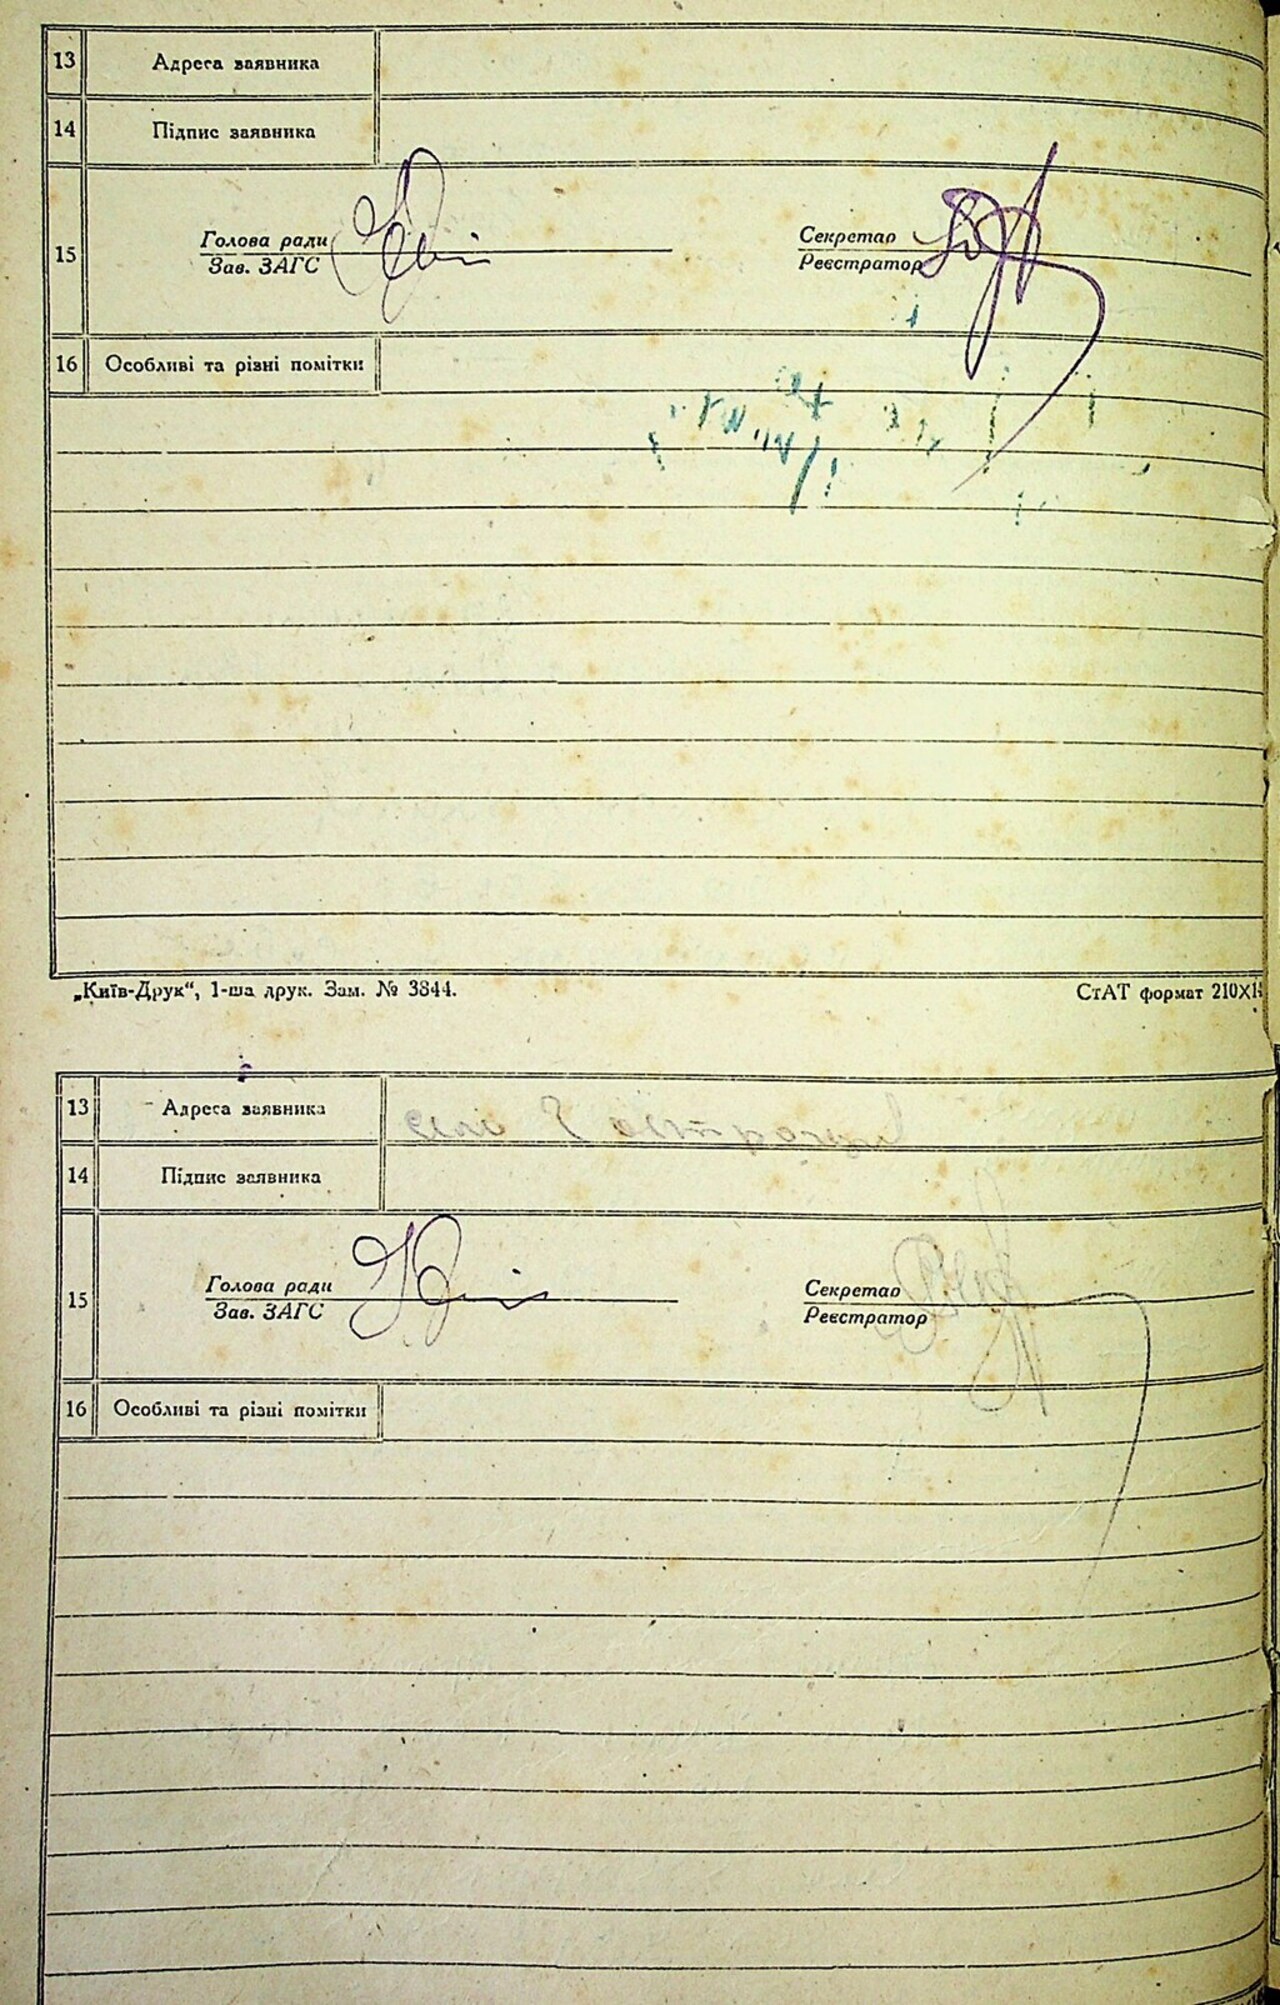 13 Адреса заявника
14 Підпис заявника
15 Голова ради Секретар
Зав. ЗАГС Реєстратор
16 Особливі та різні помітки
„Київ-Друк“, 1-ша друк. Зам. № 3844. СтАТ формат 210X1
13 Адреса заявника село
14 Підпис заявника
15 Голова ради Секретар
Зав. ЗАГС Реєстратор
16 Особливі та різні помітки